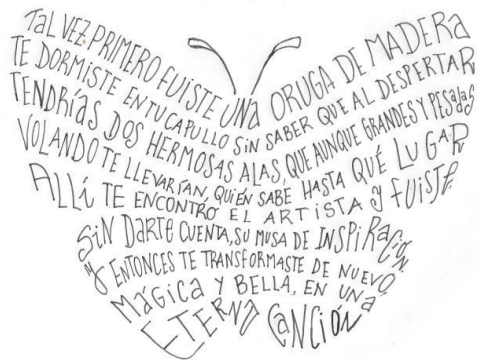 TAL VEZ PRIMERO FUISTE UNA ORUGA DE MADERA
TE DORMISTE EN TU CAPULLO SIN SABER QUE AL DESPERTAR
TENDRÍAS DOS HERMOSAS ALAS, QUE AUNQUE GRANDES Y PESADAS
VOLANDO TE LLEVARÍAN, QUIÉN SABE HASTA QUÉ LUGAR
ALLÍ TE ENCONTRÓ EL ARTISTA Y FUISTE.
SIN DARTE CUENTA, SU MUSA DE INSPIRACIÓN.
Y ENTONCES TE TRANSFORMASTE DE NUEVO,
MÁGICA Y BELLA, EN UNA
ETERNA CANCIÓN